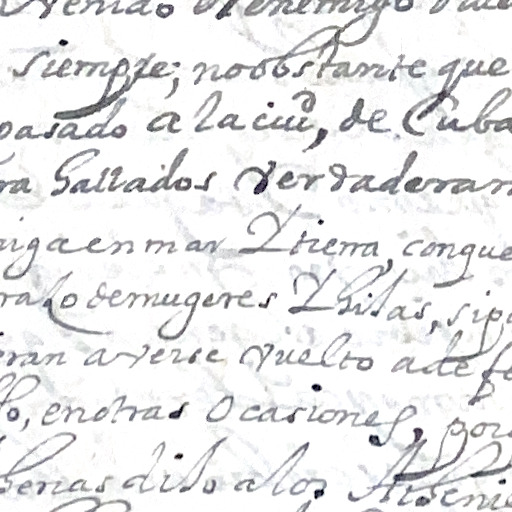 venido el enemigo
siempre; noobstante que
pasado a la ciud, de Cuba
ra hallados Verdaderam
miga en mar Y tierra, conque
ralo de mugeres Y hijas, si p
eran averse vuelto a def
lo, en otras Ocasiones, por
thenas dijo a los Athenie